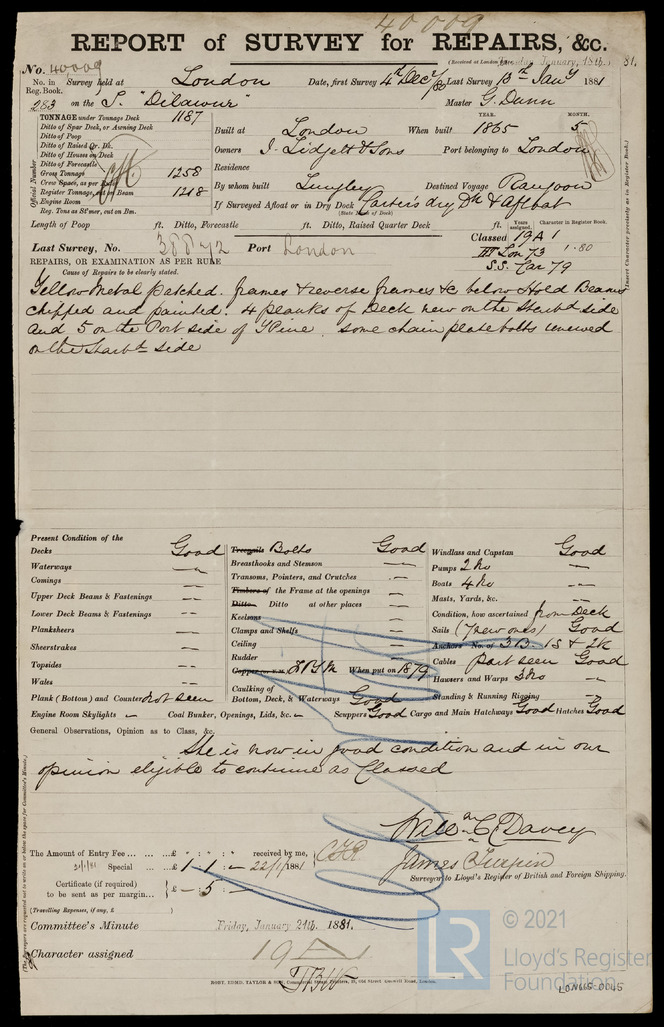 40009
REPORT of SURVEY for REPAIRS, &c.
(Received at London Tuesday January, 18th. 81.
No. 40009
No. in Reg. Book. Survey held at London Date, first Survey 4th Decr/80 Last Survey 13th Jany 1881
283 on the S. "Dilawur" Master G. Dunn
TONNAGE under Tonnage Deck 1187
Ditto of Spar Deck, or Awning Deck
Ditto of Poop
Ditto of Raised Qr. Dk.
Ditto of Houses on Deck
Ditto of Forecastle
Gross Tonnage 1258
Crew Space, as per Rule
Register Tonnage, cut on Beam 1218
Engine Room
Reg. Tons as St'mer, cut on Bm.
Official Number
YEAR. MONTH.
Built at London When built 1865 5
Owners J. Lidgett & Sons Port belonging to London
Residence
By whom built Langley Destined Voyage Rangoon
If Surveyed Afloat or in Dry Dock Carter's dry Dk & Afloat
(State name of Dock)
Length of Poop ft. Ditto, Forecastle ft. Ditto, Raised Quarter Deck ft.
Years assigned. Character in Register Book.
Classed 19 A 1
Lon 73 1.80
S.S. Car 79
(Insert Character precisely as in Register Book.)
Last Survey, No. 38872 Port London
REPAIRS, OR EXAMINATION AS PER RULE
Cause of Repairs to be clearly stated.
Yellow Metal patched. frames & reverse frames &c below Hold Beams
chipped and painted. 4 planks of Deck new on the Starbd side
and 5 on the Port side of Y Pine. some chain plate bolts renewed
on the Starbd side
Present Condition of the
Decks Good
Waterways
Comings
Upper Deck Beams & Fastenings
Lower Deck Beams & Fastenings
Planksheers
Sheerstrakes
Topsides
Wales
Plank (Bottom) and Counter Not seen
Engine Room Skylights
Treenails Bolts Good
Breasthooks and Stemson
Transoms, Pointers, and Crutches
Timbers of the Frame at the openings
Ditto Ditto at other places
Keelsons
Clamps and Shelfs
Ceiling
Rudder
When put on 1879
Caulking of Bottom, Deck, & Waterways Good
Coal Bunker, Openings, Lids, &c.
Windlass and Capstan Good
Pumps 2 No
Boats 4 No
Masts, Yards, &c.
Condition, how ascertained from Deck
Sails (7 new ones) Good
Anchors No. of 3 B. 1 S & 2 K
Cables Part seen Good
Hawsers and Warps 3 No
Standing & Running Rigging
Scuppers Good Cargo and Main Hatchways Good Hatches Good
General Observations, Opinion as to Class, &c.
She is now in good condition and in our
opinion eligible to continue as Classed
Willm C. Davey
James Turpin
Surveyor to Lloyd's Register of British and Foreign Shipping.
The Amount of Entry Fee £ : : received by me,
Special £ 1 . 1 . — 22/1/1881
Certificate (if required) to be sent as per margin £ — . 5 . —
(Travelling Expenses, if any, £ )
Committee's Minute Friday, January 21st. 1881.
Character assigned 19 A
ROBT. EDMD. TAYLOR & SON, Commercial Steam Printers, 19, Old Street, Goswell Road, London.
LR
© 2021
Lloyd's Register
Foundation
LON615-0045